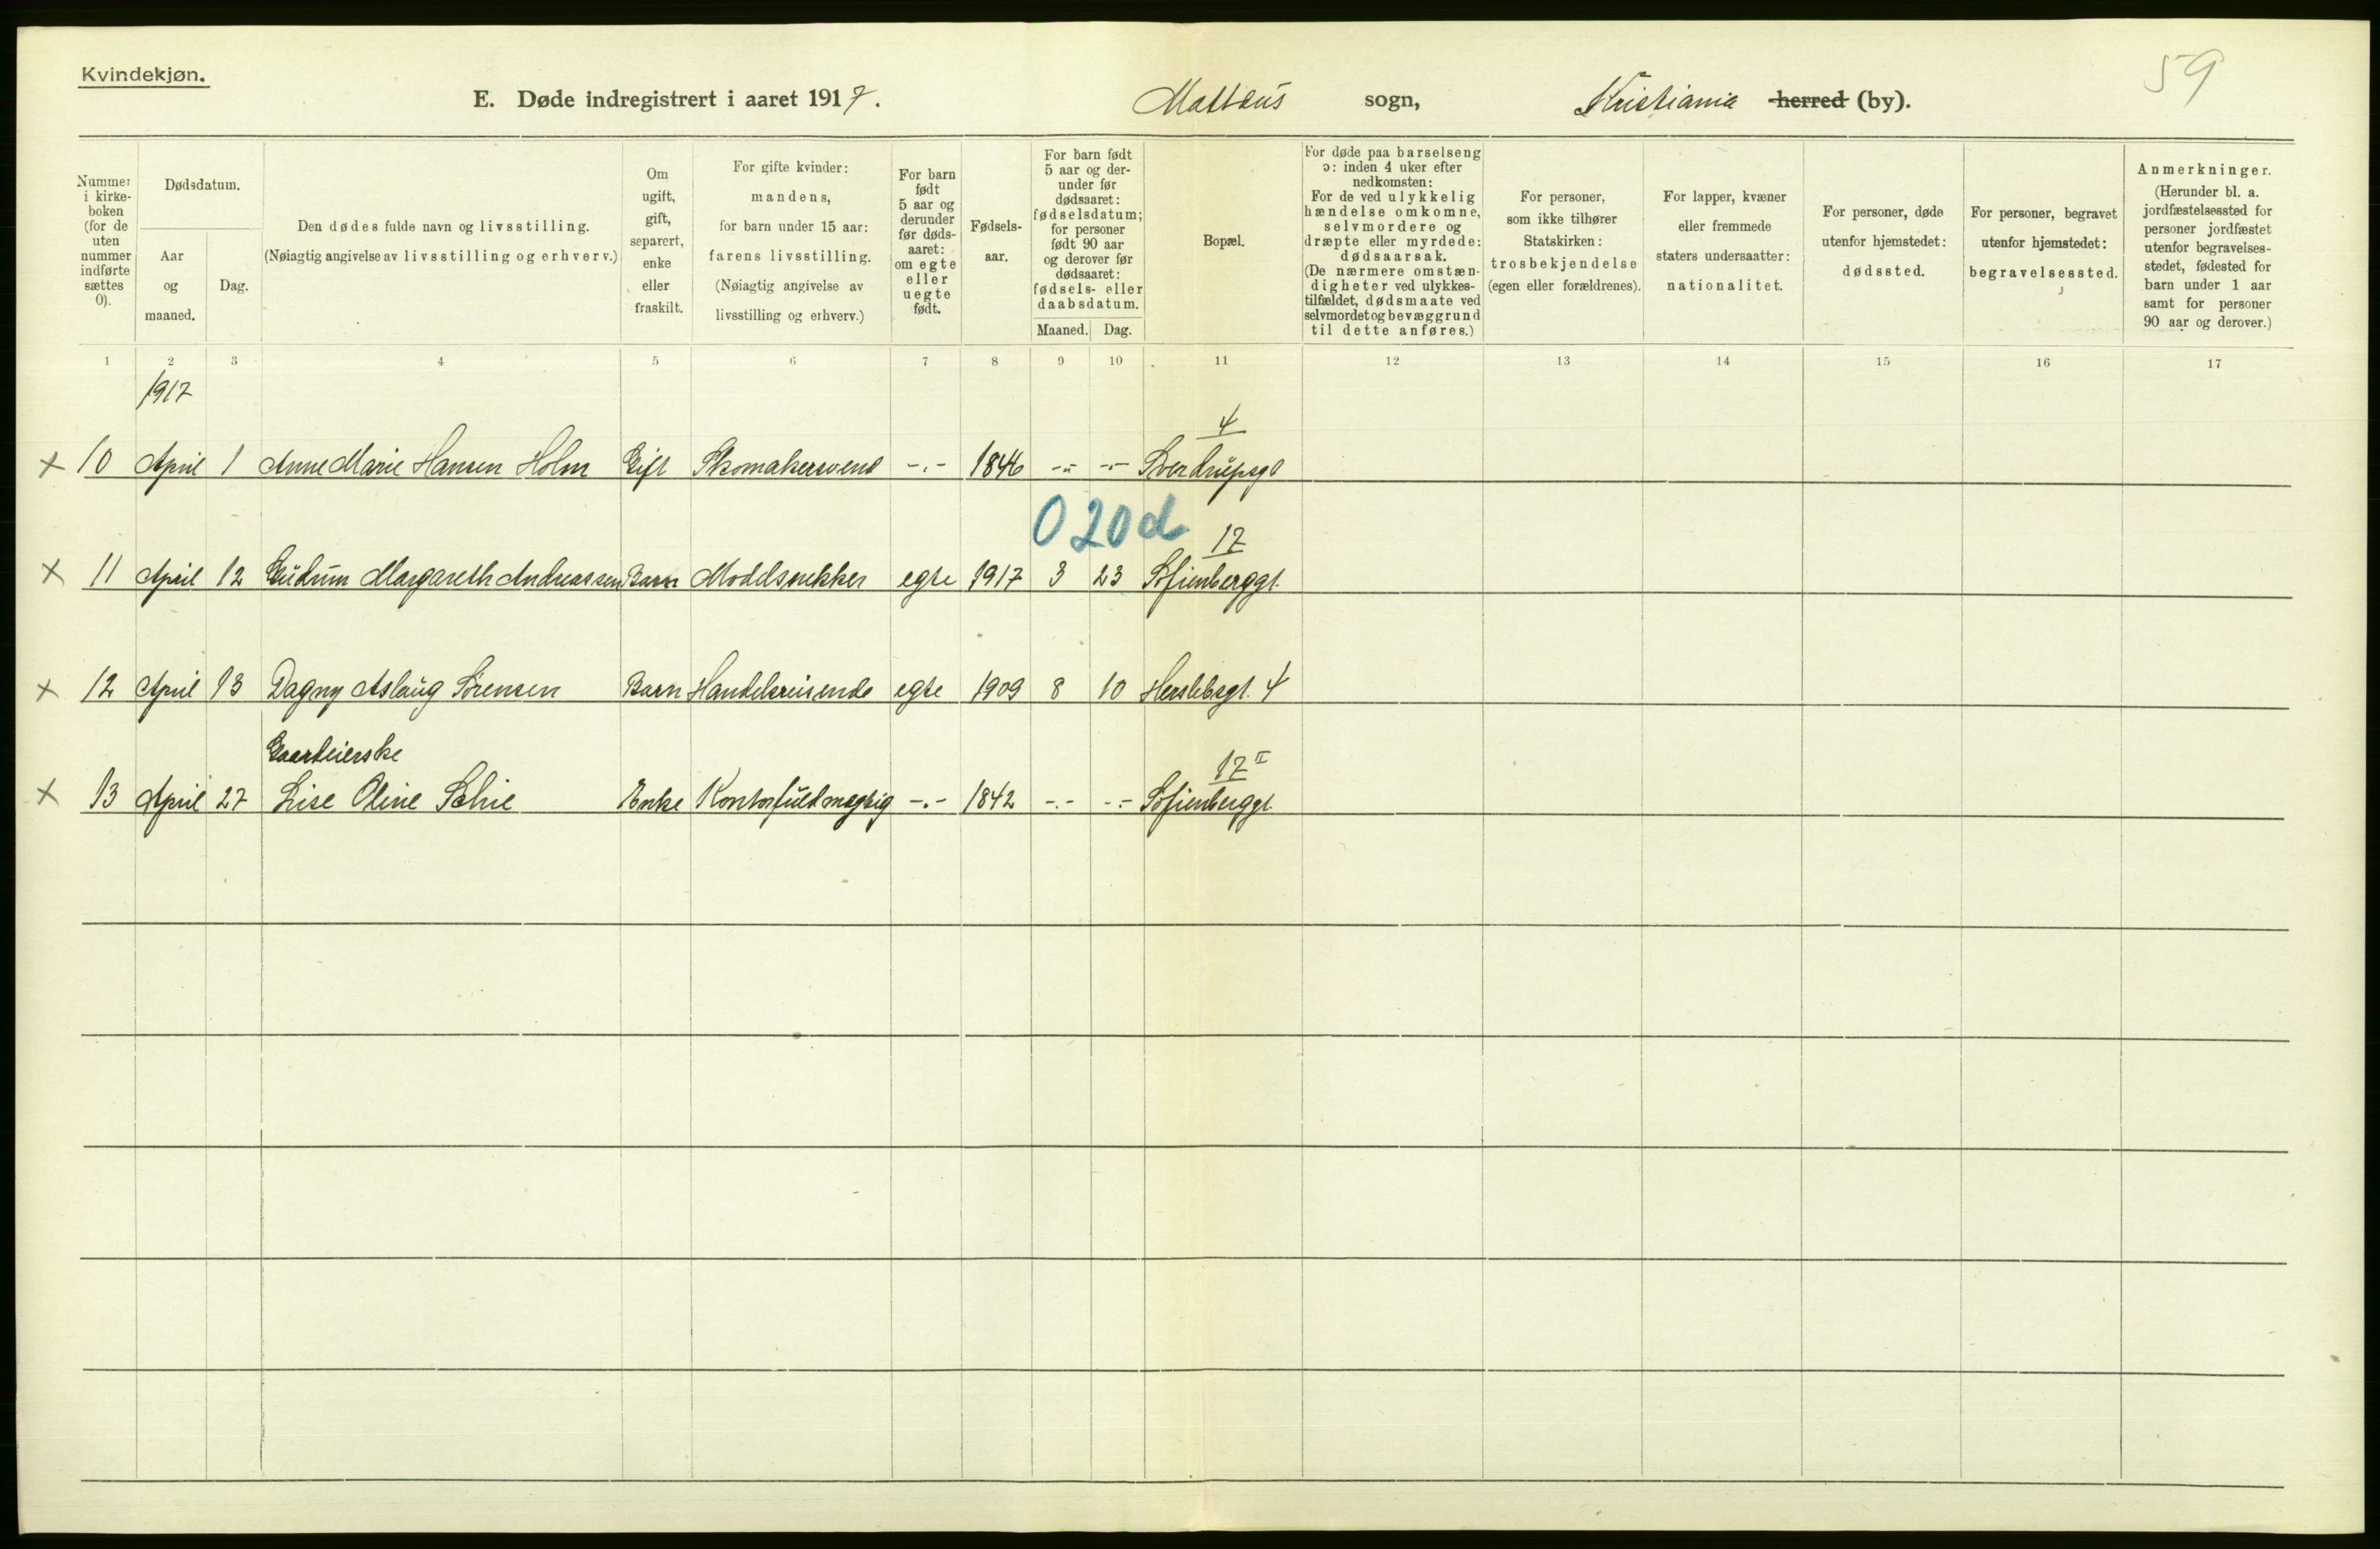 Kvindekjøn.
59
E. Døde indregistrert i aaret 1917. Mattæus sogn, Kristiania herred (by).
Nummer i kirke- boken (for de uten nummer indførte sættes 0).
Dødsdatum.
Aar og maaned.
Dag.
Den dødes fulde navn og livsstilling.
(Nøiagtig angivelse av livsstilling og erhverv.)
Om ugift, gift, separert, enke eller fraskilt.
For gifte kvinder: mandens, for barn under 15 aar: farens livsstilling. (Nøiagtig angivelse av livsstilling og erhverv.)
For barn født 5 aar og derunder før døds- aaret: om egte eller uegte født.
Fødsels- aar.
For barn født 5 aar og der- under før dødsaaret: fødselsdatum; for personer født 90 aar og derover før dødsaaret: fødsels- eller daabsdatum.
Maaned. Dag.
Bopæl.
For døde paa barselseng ɔ: inden 4 uker efter nedkomsten: For de ved ulykkelig hændelse omkomne, selvmordere og dræpte eller myrdede: dødsaarsak. (De nærmere omstæn- digheter ved ulykkes- tilfældet, dødsmaate ved selvmordet og bevæggrund til dette anføres.)
For personer, som ikke tilhører Statskirken: trosbekjendelse (egen eller forældrenes).
For lapper, kvæner eller fremmede staters undersaatter: nationalitet.
For personer, døde utenfor hjemstedet: dødssted.
For personer, begravet utenfor hjemstedet: begravelsessted.
Anmerkninger. (Herunder bl. a. jordfæstelsessted for personer jordfæstet utenfor begravelses- stedet, fødested for barn under 1 aar samt for personer 90 aar og derover.)
1 2 3 4 5 6 7 8 9 10 11 12 13 14 15 16 17
1917
4
x 10 April 1 Anne Marie Hansen Holm Gift Skomakersvend -.- 1846 -.- -.- Sverdrupsgt
020d
17
x 11 April 12 Gudrun Margareth Andreassen Barn Modelsnekker egte 1917 3 23 Sofienberggt.
x 12 April 13 Dagny Aslaug Sørensen Barn Handelsreisende egte 1909 8 10 Herslebsgt. 4
Gaardeierske
17 II
x 13 April 27 Lise Oline Schie Enke Kontorfuldmægtig -.- 1842 -.- -.- Sofienberggt.